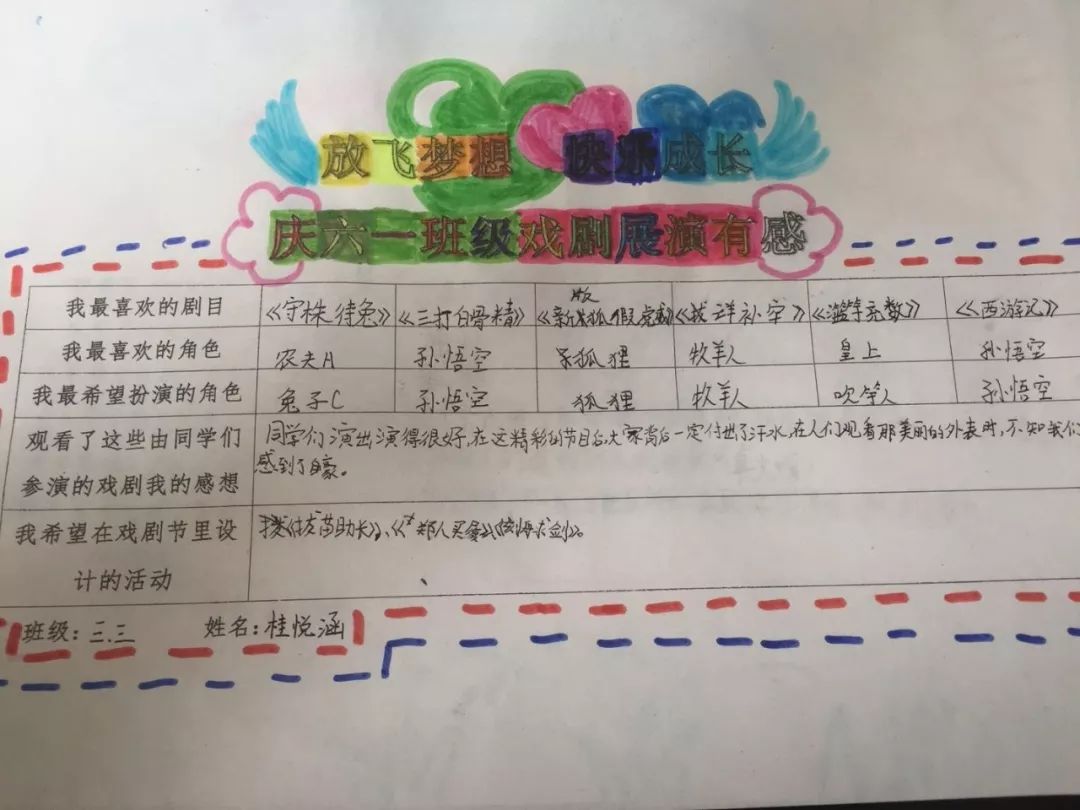 放飞梦想 快乐成长
庆六一班级戏剧展演有感
我最喜欢的剧目 《守株待兔》 《三打白骨精》 《新版狐假虎威》 《牧羊补牢》 《滥竽充数》 《西游记》
我最喜欢的角色 农夫A 孙悟空 狐狸 牧羊人 皇上 孙悟空
我最希望扮演的角色 兔子C 孙悟空 狐狸 牧羊人 吹竽人 孙悟空
观看了这些由同学们 同学们演出演得很好,在这精彩的节目后大家背后一定付出了汗水,在人们观看那美丽的外表时,不知我们
参演的戏剧我的感想 感到了自豪。
我希望在戏剧节里设 《拔苗助长》、《郑人买履》
计的活动
班级:三.三 姓名:桂悦涵